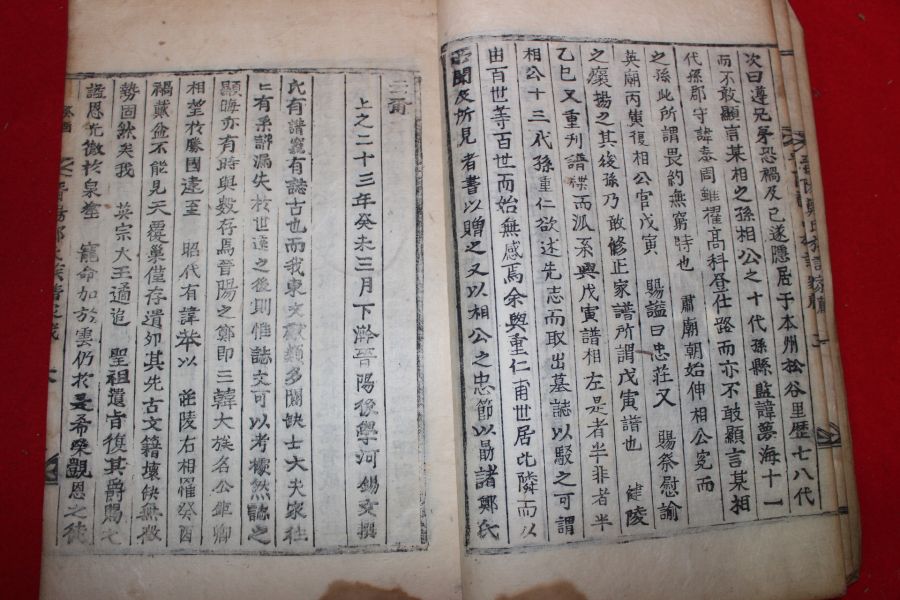 次曰遵兄弟恐禍及已遂隱居于本州松谷里歷七八代
而不敢顯言某相之孫相公之十代孫縣監諱夢海十一
代孫郡守諱泰周雖擢高科登仕路而亦不敢顯言某相
之孫此所謂畏約無窮時也　肅廟朝始伸相公寃而
英廟丙寅復相公官戊寅　賜諡曰忠莊又　賜祭慰諭
之褒揚之其後孫乃敢修正家譜所謂戊寅譜也　健陵
乙巳又重刊譜牒而派系與戊寅譜相左是者半非者半
相公十三代孫重仁欲述先志而取出墓誌以駁之可謂
由百世等百世而始無感焉余與重仁甫世居比隣而以
所聞及所見者書以贈之又以相公之忠節以勗諸鄭氏
云爾
上之二十三年癸未三月下澣晉陽後學河錫文撰
氏有譜竁有誌古也而我東文獻類多闕缺士大夫家往
往有系諱漏失於世遠之後則惟誌文可以考據然誌之
顯晦亦有時與數存焉晉陽之鄭卽三韓大族名公鉅卿
相望於勝國逮至　昭代有諱苯以　莊陵右相罹癸酉
禍戴盆不能見天覆巢僅存遺卵其先古文籍壞缺無徵
勢固然矣我　英宗大王遹追　聖祖遺旨復其爵賜之
諡恩光徹於泉壑　寵命加於雲仍於是希榮覬恩之徒